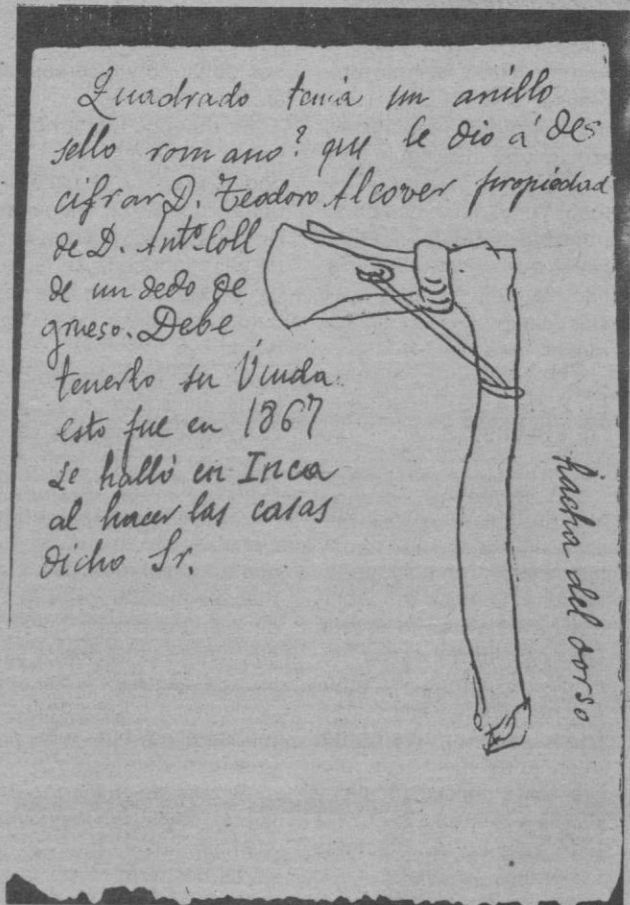 Quadrado tenia un anillo
sello romano? que le dio á des
cifrar D. Teodoro Alcover propiedad
de D. Antº Coll
de un dedo de
grueso. Debe
tenerlo su Viuda
esto fue en 1867
Se halló en Inca
al hacer las casas
dicho Sr.
hacha del dorso